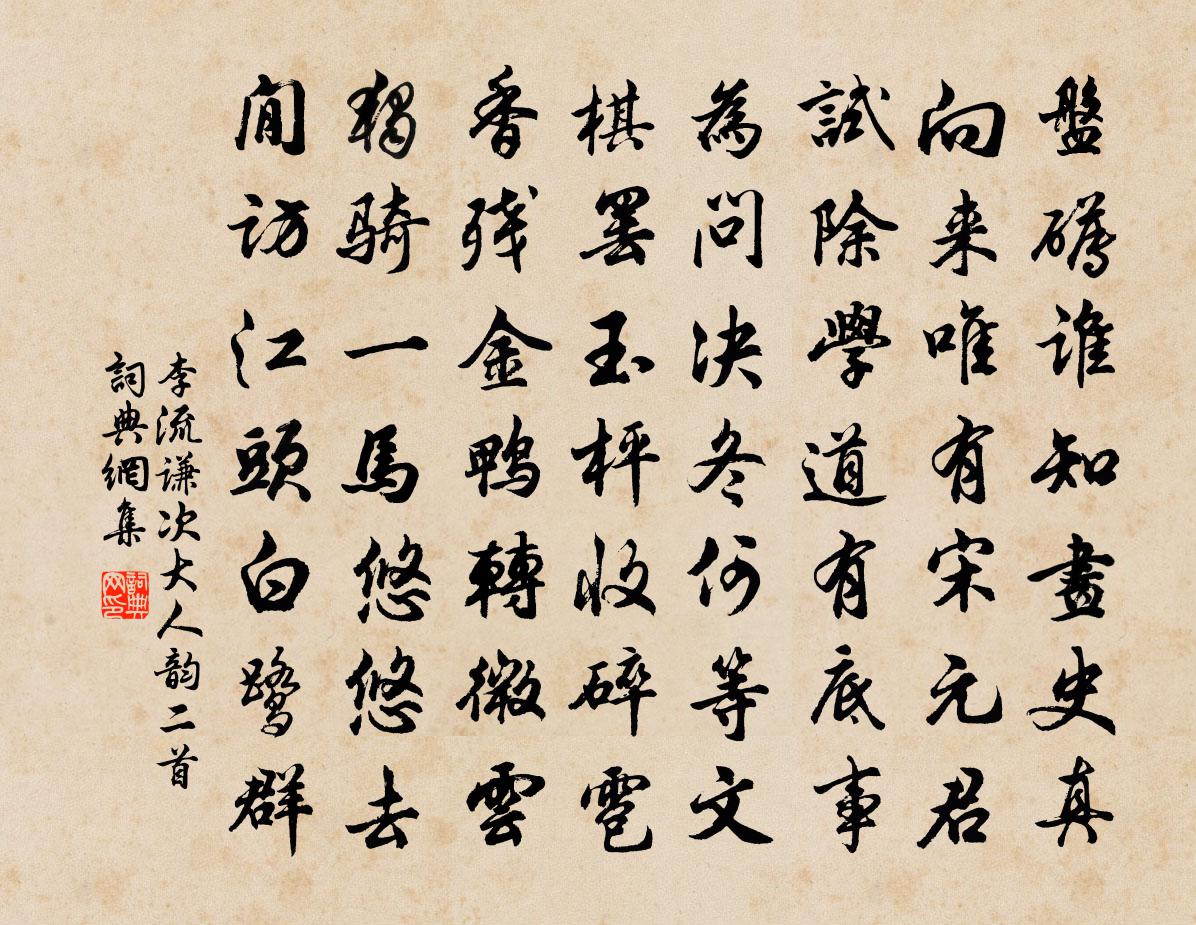 盤礴谁知畫史真
向来唯有宋元君
試除學道有底事
為问决冬何等文
棋罢玉枰收碎雹
香残金鸭轉微雲
獨骑一馬悠悠去
闻访江頭白鹭群
李流谦次大人韵二首
詞典網集
詞典网印